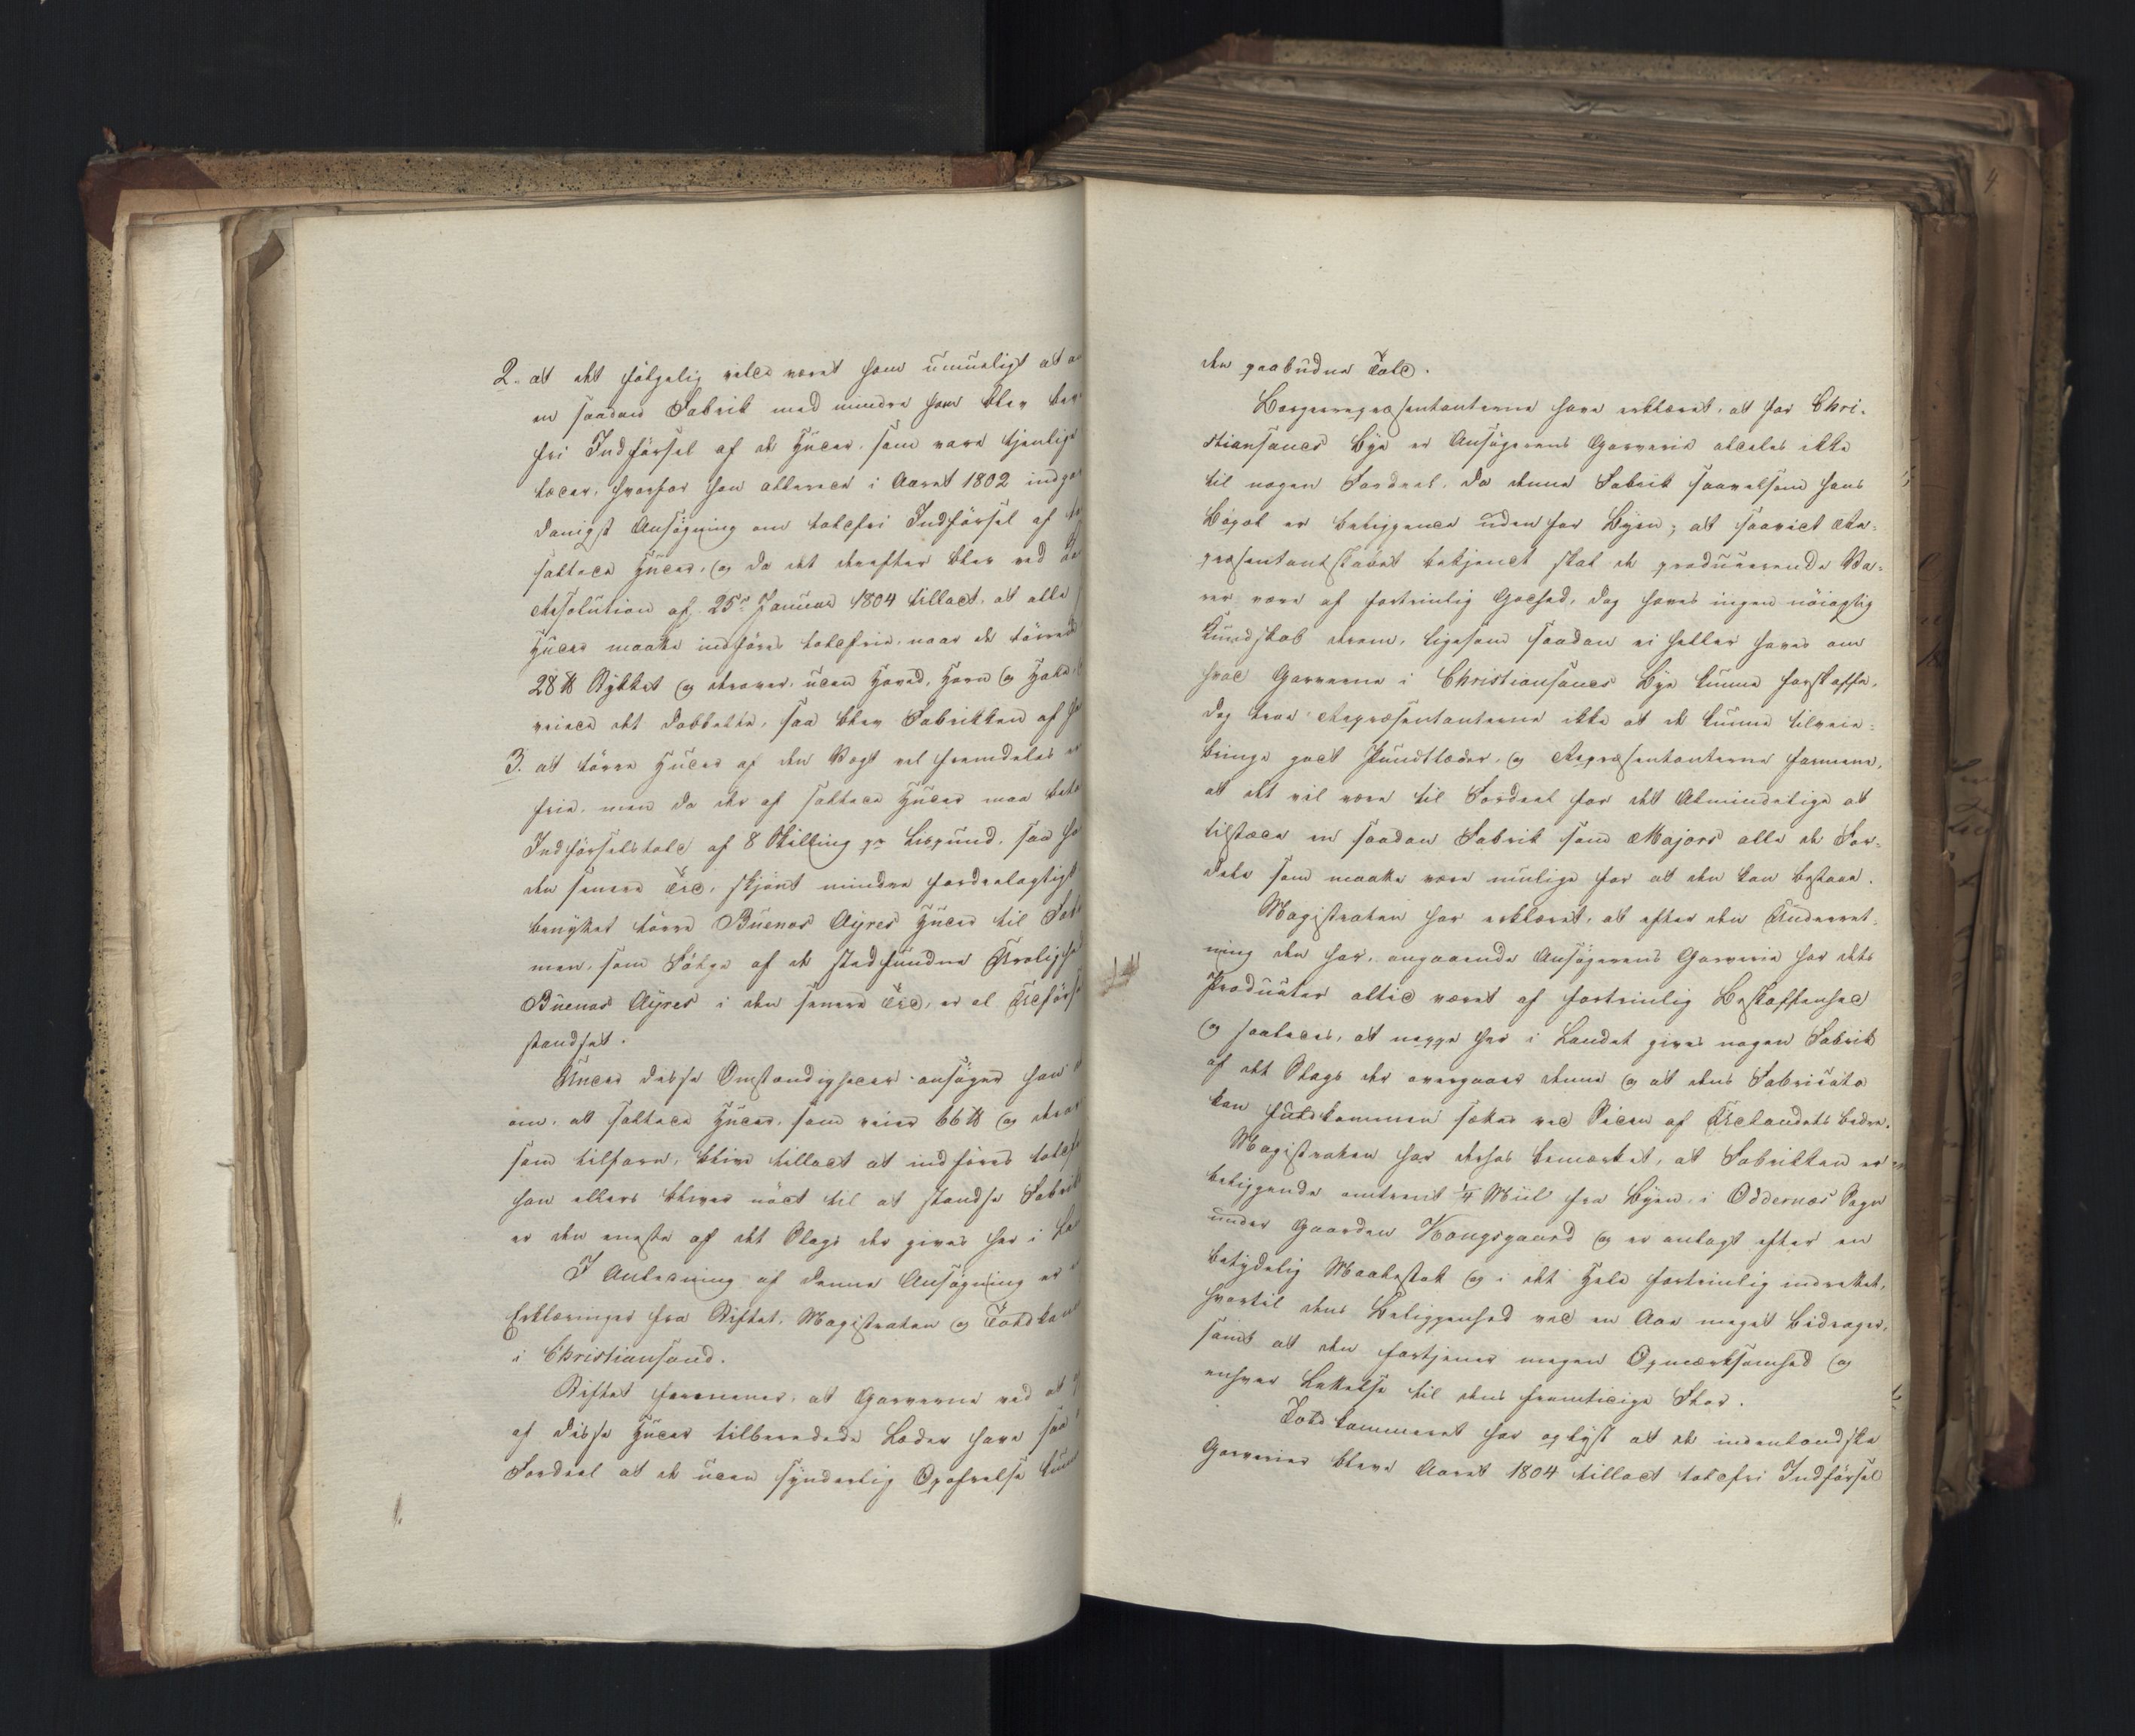 2. at det følgelig vilde været ham umueligt at
en saadan Fabrik med mindre ham blev
fri Indførsel af de Huder, som vare tjenlige
læder, hvorfor han allerede i Aaret 1802
danigst Ansøgning om toldfri Indførsel af
saltede Huder, og da det derefter blev ved
Resolution af 25de Januar 1804 tilladt, at alle
Huder maatte indføres toldfrie, naar de tørrede
28 ℔ Stykket og derover, uden Hoved, Horn og Hale,
veiede det dobbelte, saa blev Fabrikken af
3. at tørre Huder af den Vægt vel fremdeles
frie, men da der af saltede Huder maa
Indførselstold af 8 Skilling pr Lispund, saa
den senere Tid, skjønt mindre fordeelagtigt
benyttet tørre Buenos Ayres Huder til
men, som Følge af de stedfundne
Buenos Ayres i den senere Tid, er al
standset.
Under disse Omstændigheder ansøger han
om, at saltede Huder, som veier 66 ℔ og
som tilforn, blive tilladt at indføres
han ellers bliver nødt til at standse
er den eneste af det Slags der gives her i
I Anledning af denne Ansøgning er
Erklæringer fra Stiftet, Magistraten og
i Christiansand.
Stiftet formener, at Garverne ved at
af disse Huder tilberedede Læder have saa
Fordeel at de uden synderlig Opofrelse
den paabudne Told.
Borgerrepræsentanterne have erklæret, at for Chri-
stiansands Bye er Ansøgerens Garverie aldeles ikke
til nogen Fordeel, da denne Fabrik saavelsom hans
Bopæl er beliggende uden for Byen; at saavidt Re-
præsentantskabet bekjendt skal de producerende Va-
rer være af fortrinlig Godhed, dog haves ingen nøiagtig
Kundskab derom, ligesom saadan ei heller haves om
hvad Garverne i Christiansands Bye kunne forskaffe,
dog troe Repræsentanterne ikke at de kunne tilveie-
bringe godt Pundtlæder, og Repræsentanterne formene,
at det vil være til Fordeel for det Almindelige at
tilstæde en saadan Fabrik som Majors alle de For-
dele som maatte være mulige for at den kan bestaae.
Magistraten har erklæret, at efter den Underret-
ning den har, angaaende Ansøgerens Garverie har dets
Producter altid været af fortrinlig Beskaffenhed
og saaledes, at neppe her i Landet gives nogen Fabrik
af det Slags der overgaaer denne og at dens Fabricata
kan fuldkommen sættes ved Siden af Udlandets bedre.
Magistraten har derhos bemærket, at Fabrikken er
beliggende omtrent ¼ Miil fra Byen, i Oddernæs Sogn
under Gaarden Kongsgaard og er anlagt efter en
betydelig Maalestok og i det Hele fortrinlig indrettet,
hvortil dens Beliggenhed ved en Aae meget bidrager,
samt at den fortjener megen Opmærksomhed og
enhver Lettelse til dens fremtidige Flor.
Toldkammeret har oplyst at de indenlandske
Garverier bleve Aaret 1804 tilladt toldfri Indførsel